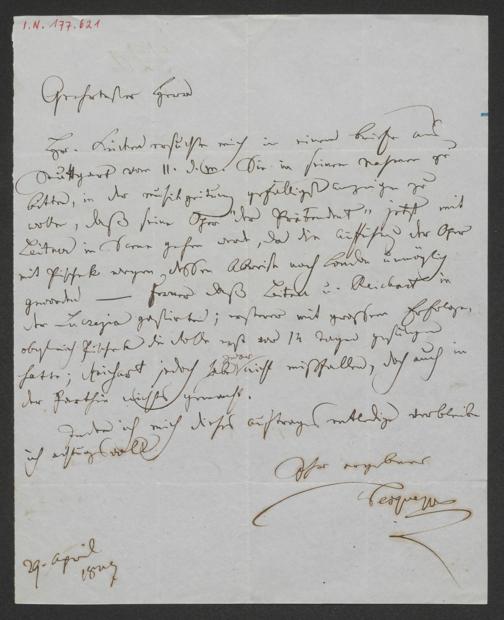 I.N. 177.621
Geehrtester Herr
Hr. Kücken ersuchte mich in einem Briefe aus
Stuttgart vom 11. d. M. Sie in seinem Nahmen zu
bitten, in der Musikzeitung gefälligst anzeigen zu
wollen, daß seine Oper "der Prätendent" jetzt mit
in Scene gehen werde, da die Aufführung der Oper
mit Pischek wegen dessen Abreise nach London unmöglich
geworden — Ferner daß Leitner u. Reichart in
der Lucrezia gastirten; ersterer mit grossem Erfolge,
obgleich Pischek die Rolle erst vor 14 Tagen gesungen
hatte; Reichart jedoch habe zwar nicht mißfallen, doch auch in
der Parthie nichts gemacht.
Indem ich mich dieses Auftrages entledige verbleibe
ich achtungsvoll
Ihr ergebener
29. April